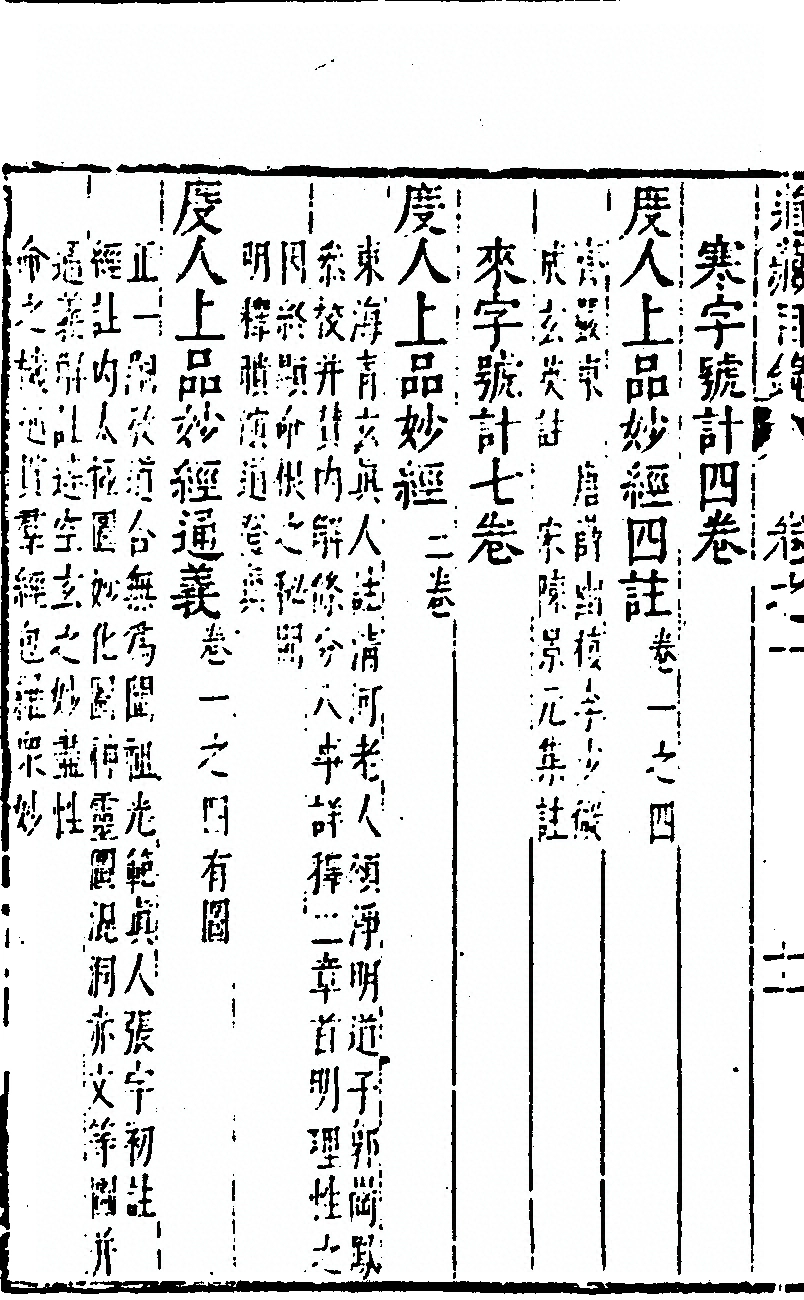 道藏目錄 卷之一 十一
寒字號計四卷
度人上品妙經四註 卷一之四
齊嚴東 唐薛幽棲李少微
成玄英註 宋陳景元集註
來字號計七卷
度人上品妙經 二卷
東海青玄真人註淸河老人頌淨明道子郭岡鳳
叅校并賛內解條分八事詳釋二章首明理性之
因終顯命根之秘
明釋道登真
度人上品妙經通義 卷一之四有圖
正一嗣教道合無為闡祖光範眞人張宇初註
經註內太極圖妙化圖神靈圖混洞赤文等圖并
通義解註造空玄之妙盡性
命之機通貫羣經包羅衆妙